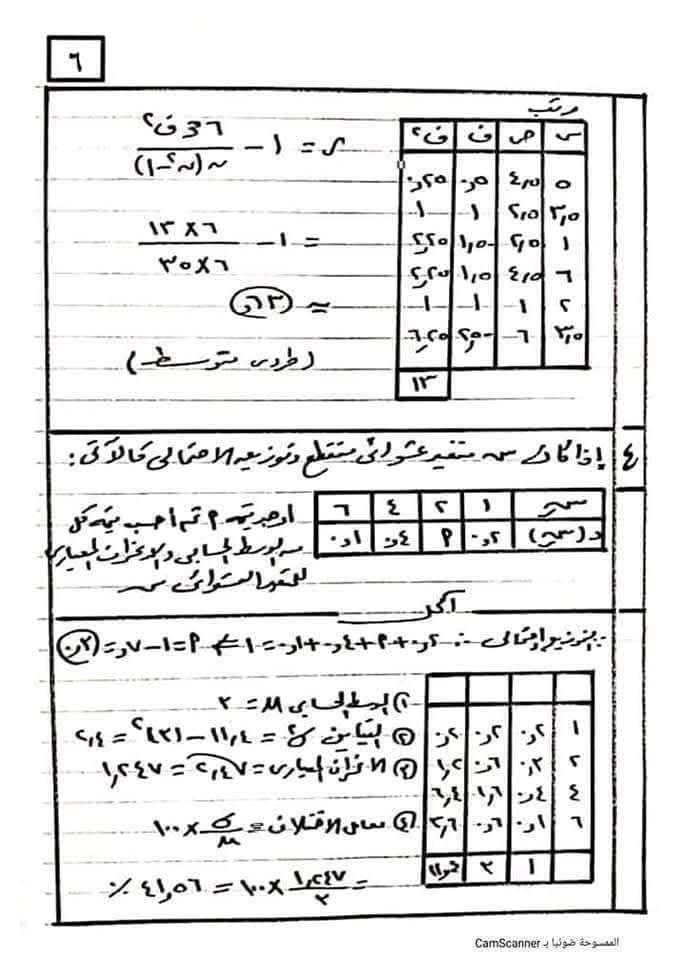 ٦
مرتب
س ص ف ف٢
٥ ٤,٥ ٠,٥ ٠,٢٥
٣,٥ ٢,٥ ١ ١
١ ٢,٥ -١,٥ ٢,٢٥
٦ ٤,٥ ١,٥ ٢,٢٥
٢ ١ ١ ١
٣,٥ ٦ -٢,٥ ٦,٢٥
١٣
ر = ١ - ٦ مجـ ف٢ / ن (ن٢ - ١)
= ١ - ٦ × ١٣ / ٦ × ٣٥
≃ ٠,٦٣
(طردى متوسط)
٤ إذا كان س متغير عشوائى متقطع وتوزيعه الاحتمالى كالآتى:
سر ١ ٢ ٤ ٦
د(سر) ٠,٢ م ٠,٤ ٠,١
أوجد قيمة م ثم أحسب قيمة كل
من الوسط الحسابى والانحراف المعيارى
للمتغير العشوائى س
الحل
∵ التوزيع احتمالى ∴ ٠,٢ + م + ٠,٤ + ٠,١ = ١ ⇐ م = ١ - ٠,٧ = ٠,٣
١ ٠,٢ ٠,٢ ٠,٢
٢ ٠,٣ ٠,٦ ١,٢
٤ ٠,٤ ١,٦ ٦,٤
٦ ٠,١ ٠,٦ ٣,٦
١ ٣ ١١,٤
① الوسط الحسابى μ = ٣
② التباين σ٢ = ١١,٤ - (٣)٢ = ٢,٤
③ الانحراف المعيارى = = ١,٢٤٧
④ معامل الاختلاف = σ / μ × ١٠٠
= ١,٢٤٧ / ٣ × ١٠٠ = ٤١,٥٦ ٪
الممسوحة ضوئيا بـ CamScanner